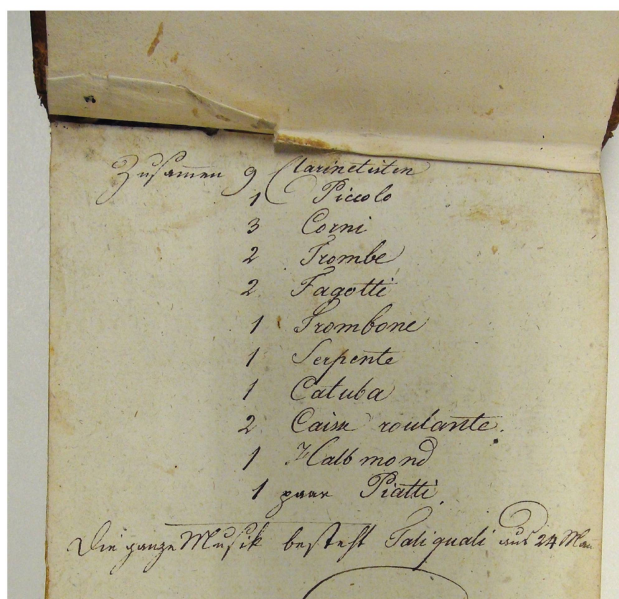 Zusammen 9 Clarinetisten
1 Piccolo
3 Corni
2 Trombe
2 Fagotti
1 Trombone
1 Serpente
1 Catuba
2 Caiss roulante.
1 Halbmond
1 paar Piatti.
Die ganze Musik besteht Taliquali aus 24 Man